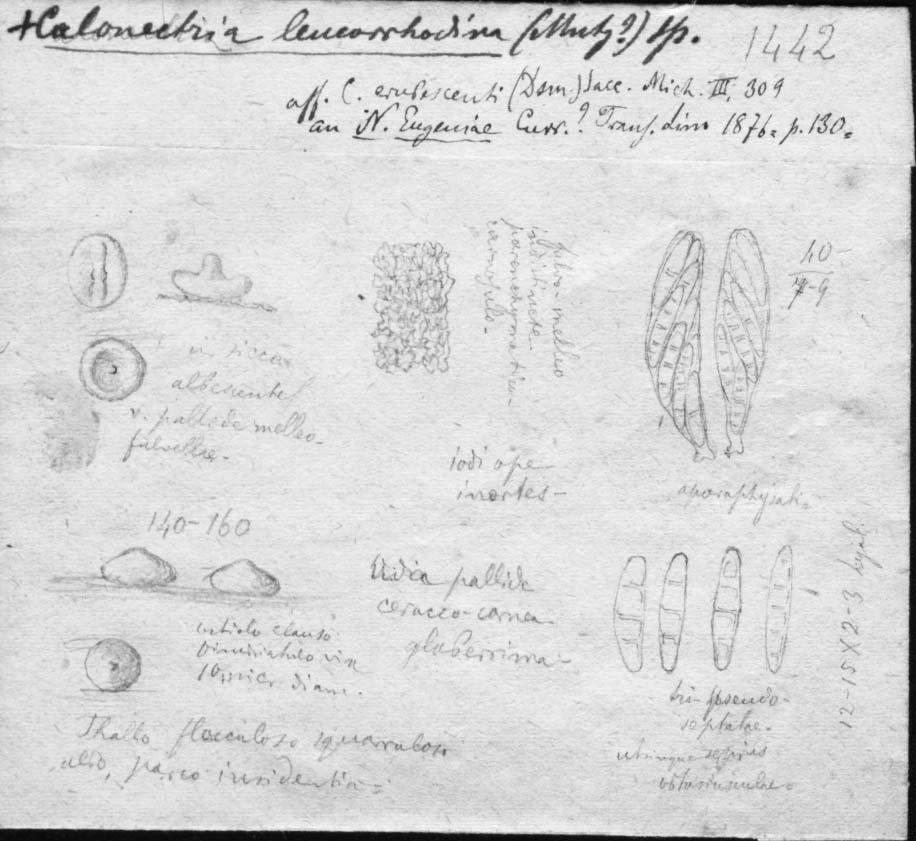 +Calonectria leucorrhodina (Mntg?) Sp.
1442
aff. C. erubescenti (Dsm.) Sacc. Mich. III, 309
an N. Eugeniae Curr.? Trans. Linn 1876. p. 130.
fulvo-melleo
indistincte
parenchymatico
40
7-9
in sicco
albescentes
v. pallide melleo-
fulvellae.
iodi ope
inertes-
aparaphysati.
140-160
pallide
ceraceo-cornea
glaberrima-
ostiolo clauso
vix
10 micr. diam.
12-15 X 2-3 hyal.
tri-pseudo-
septatae.
utrinque
obtusiusculae-
Thallo flocculoso squamuloso
albo, parco insidentia-